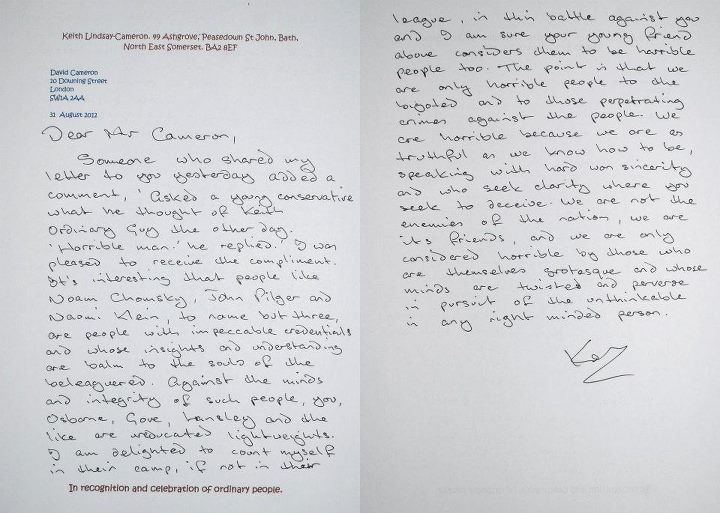 Keith Lindsay-Cameron. 49 Ashgrove, Peasedown St John, Bath,
North East Somerset. BA2 8EF
David Cameron
10 Downing Street
London
SW1A 2AA
31 August 2012
Dear Mr Cameron,
Someone who shared my
letter to you yesterday added a
comment, 'Asked a young conservative
what he thought of Keith
Ordinary Guy the other day.
'Horrible man.' he replied.' I was
pleased to receive the compliment.
It's interesting that people like
Noam Chomsky, John Pilger and
Naomi Klein, to name but three,
are people with impeccable credentials
and whose insights and understanding
are balm to the souls of the
beleaguered. Against the minds
and integrity of such people, you,
Osborne, Gove, Lansley and the
like are uneducated lightweights.
I am delighted to count myself
in their camp, if not in their
In recognition and celebration of ordinary people.
league, in this battle against you
and I am sure your young friend
above considers them to be horrible
people too. The point is that we
are only horrible people to the
bigoted and to those perpetrating
crimes against the people. We
are horrible because we are as
truthful as we know how to be,
speaking with hard won sincerity
and who seek clarity where you
seek to deceive. We are not the
enemies of the nation, we are
it's friends, and we are only
considered horrible by those who
are themselves grotesque and whose
minds are twisted and perverse
in pursuit of the unthinkable
in any right minded person.